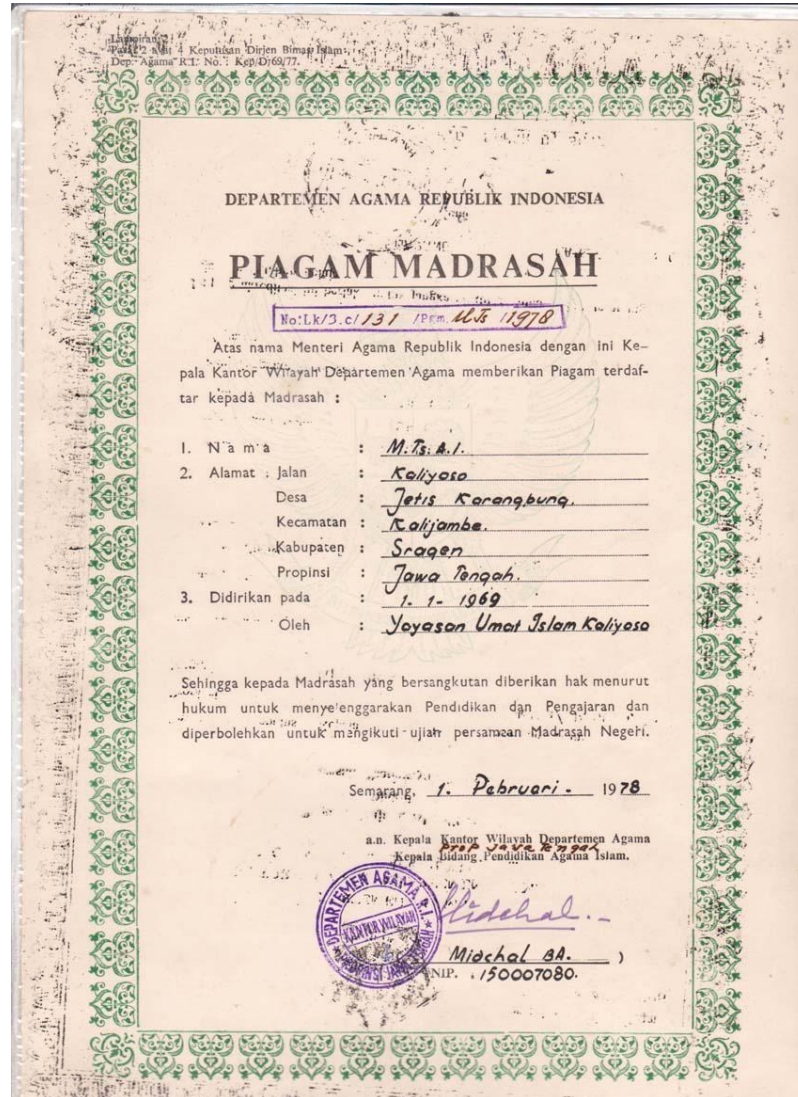 Lampiran 2
Pasal 2 ayat 4 Keputusan Dirjen Bimas Islam
Dep. Agama R.I. No. : Kep/D/69/77.
DEPARTEMEN AGAMA REPUBLIK INDONESIA
PIAGAM MADRASAH
No:Lk/3.c/131 /Pgm. MTs /1978
Atas nama Menteri Agama Republik Indonesia dengan ini Ke-
pala Kantor Wilayah Departemen Agama memberikan Piagam terdaf-
tar kepada Madrasah :
1. Nama : M.Ts. A.I.
2. Alamat : Jalan : Kaliyoso
Desa : Jetis Karangbung.
Kecamatan : Kalijambe.
Kabupaten : Sragen
Propinsi : Jawa Tengah.
3. Didirikan pada : 1. 1- 1969
Oleh : Yayasan Umat Islam Kaliyoso
Sehingga kepada Madrasah yang bersangkutan diberikan hak menurut
hukum untuk menye'enggarakan Pendidikan dan Pengajaran dan
diperbolehkan untuk mengikuti ujian persamaan Madrasah Negeri.
Semarang, 1. Pebruari - 1978
a.n. Kepala Kantor Wilayah Departemen Agama
Prop Jawa Tengah
Kepala Bidang Pendidikan Agama Islam.
DEPARTEMEN AGAMA R.I.
KANTOR WILAYAH
PROPINSI JAWA TENGAH
Midchal.-
Midchal BA. )
NIP. 150007080.